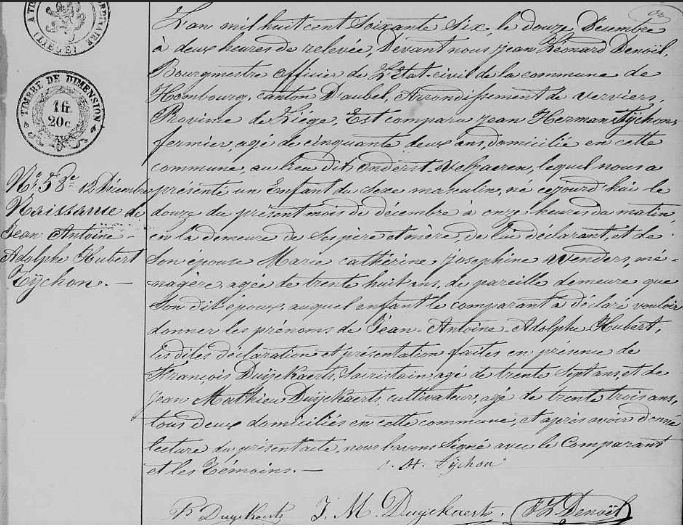 (LIÈGE)
TIMBRE DE DIMENSION
1 fr
20c
No. 58. 12 Décembre
Naissance de
Jean Antoine
Adolphe Hubert
Tÿchon. —
L'an mil huit cent Soixante Six, le douze Décembre
à deux heures de relevée, Devant nous Jean Léonard Denoël,
Bourgmestre officier de L'Etat-civil de la commune de
Hombourg, canton D'aubel, Arrondissement de Verviers,
Province de Liège, Est comparu Jean Herman Tÿchon,
fermier, agé de cinquante deux ans, domicilié en cette
commune, au lieu dit, lequel nous a
présenté un Enfant du sexe masculin, né cejourd'hui le
douze du présent mois de décembre à onze heures du matin,
en la demeure de Ses père et mère, de lui déclarant, et de
Son épouse Marie Catherine Josephine Wenders, mé-
nagère, agée de trente huit ans, de pareille demeure que
Son dit époux, auquel enfant le comparant a déclaré vouloir
donner les prénoms de Jean Antoine Adolphe Hubert,
les dites déclaration et présentation faites en présence de
François Duÿckaerts, Sacristain, agé de trente Sept ans, et de
Jean Mathieu Duÿckaerts, cultivateur, agé de trente trois ans,
tous deux domiciliés en cette commune, et après avoir donné
lecture du présent acte, nous l'avons Signé avec le Comparant
et les Témoins. —
H. Tÿchon
Duyckaerts J. M. Duyckaerts Denoël